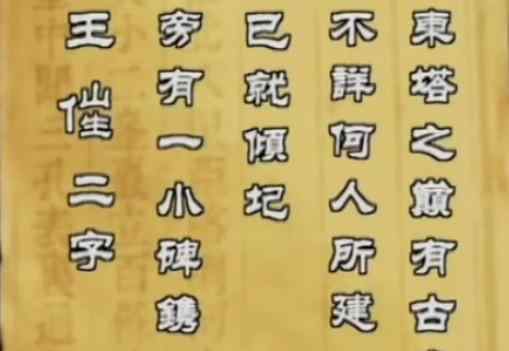 東塔之巔有古
不詳何人所建
已就傾圮
旁有一小碑鐫
王 二字